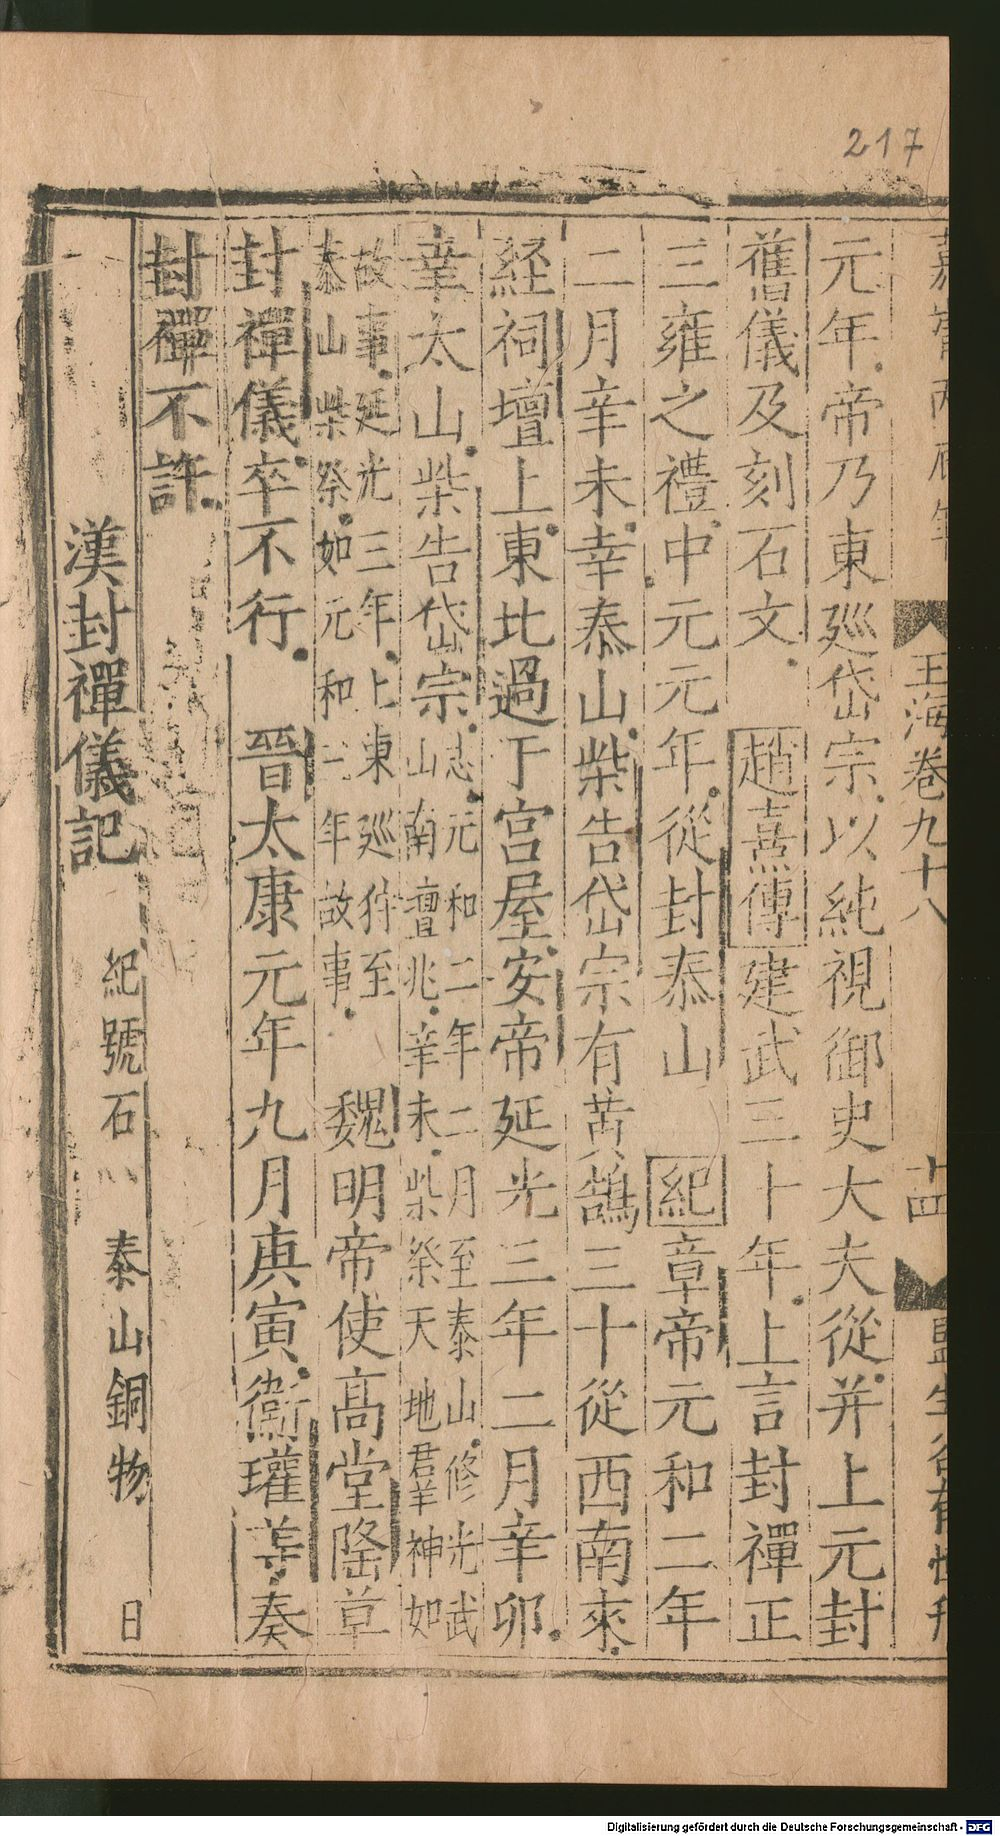 217
玉海卷九十八 十四
元年帝乃東廵岱宗以純視御史大夫從并上元封
舊儀及刻石文 趙憙傳建武三十年上言封禪正
三雍之禮中元元年從封泰山 紀章帝元和二年
二月辛未幸泰山柴告岱宗有黄鵠三十從西南來
経祠壇上東北過于宫屋安帝延光三年二月辛卯
幸太山柴告岱宗志元和二年二月至泰山修光武
山南壇兆辛未柴祭天地群神如
故事延光三年上東廵狩至
泰山柴祭如元和二年故事 魏明帝使高堂隆草
封禪儀卒不行 晉太康元年九月庚寅衞瓘等奏
封禪不許
漢封禪儀記 紀號石 泰山銅物
日
Digitalisierung gefördert durch die Deutsche Forschungsgemeinschaft - DFG